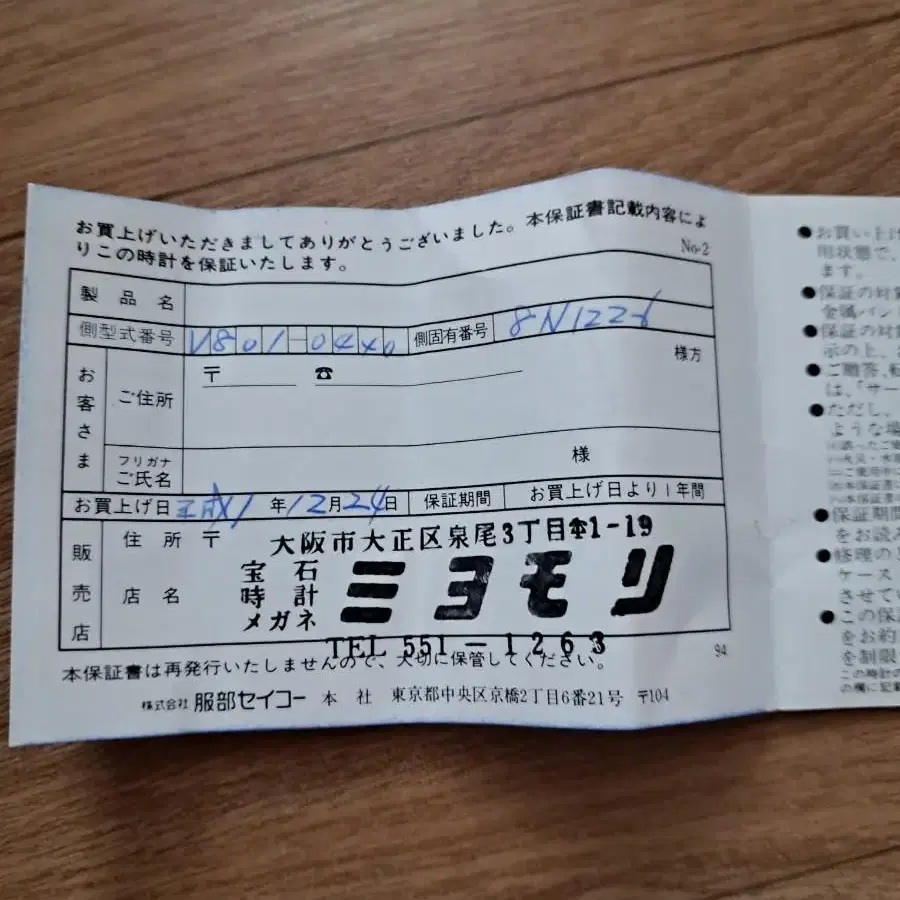 お買上げいただきましてありがとうございました。本保証書記載内容によ
りこの時計を保証いたします。
No-2
製品名
側型式番号 V801-0440 側固有番号 8N1226
お客さま
ご住所 〒 ☎ 様方
フリガナ
ご氏名 様
お買上げ日 平成1年12月24日 保証期間 お買上げ日より1年間
販売店
住所 〒 大阪市大正区泉尾3丁目1-19
店名 宝石 時計 メガネ ミヨモリ
TEL 551-1263
94
本保証書は再発行いたしませんので、大切に保管してください。
株式会社 服部セイコー 本社 東京都中央区京橋2丁目6番21号 〒104
●お買い上げ
用状態で、
ます。
●保証の対象
金属バンド
●保証の対象
示の上、
●ご贈答、転
は、「サー
●ただし、
ような場
●保証期間
をお読み
●修理の
ケース
させてい
●この保
をお約
を制限
この時計の
の欄に記載